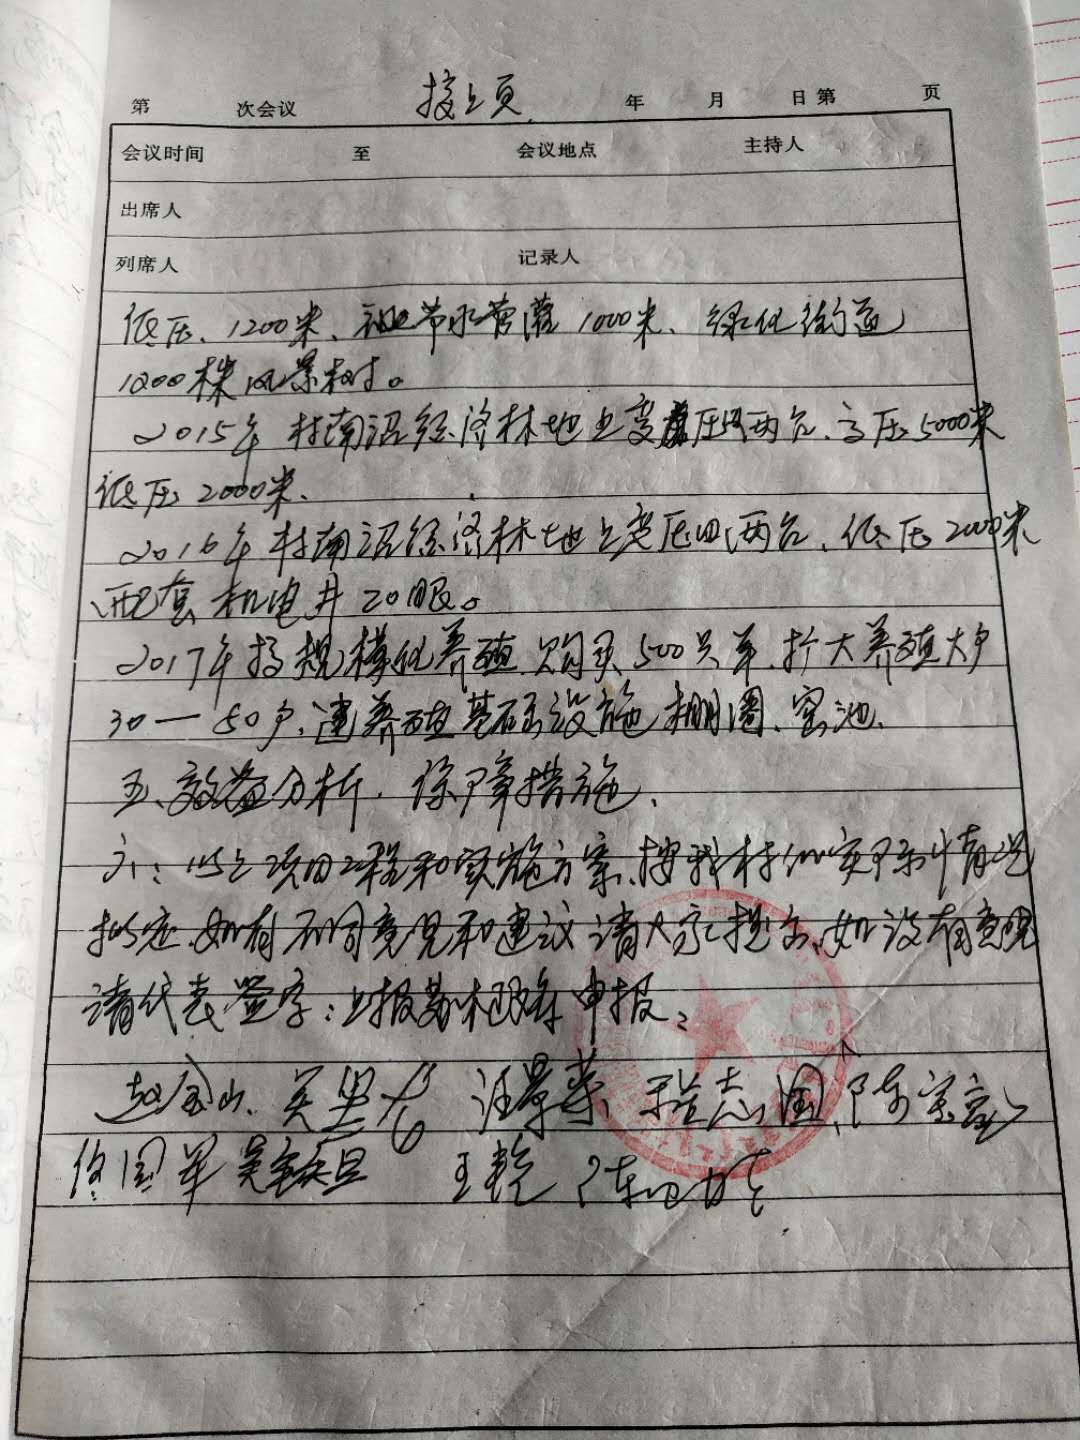 第 次会议 接上页 年 月 日 第 页
会议时间 至 会议地点 主持人
出席人
列席人 记录人
低压、1200米、节水管灌1000米、绿化街道
1200株风景树。
2015年村南沼经济林地上变压四两台、高压5000米
低压2000米、
2016年村南沼经济林地上变压四两台、低压2000米
配套机电井20眼。
2017年搞规模化养殖、购买500只羊、扩大养殖大户
30一50户、建养殖基础设施棚圈、窖池、
五、效益分析、保障措施、
六：以上项目工程和实施方案、按我村的实际情况
拟定、如有不同意见和建议请大家提出、如没有意见
请代表签字：上报苏木政府申报。
赵金山、 志国、陈宝
佟国军 王艳